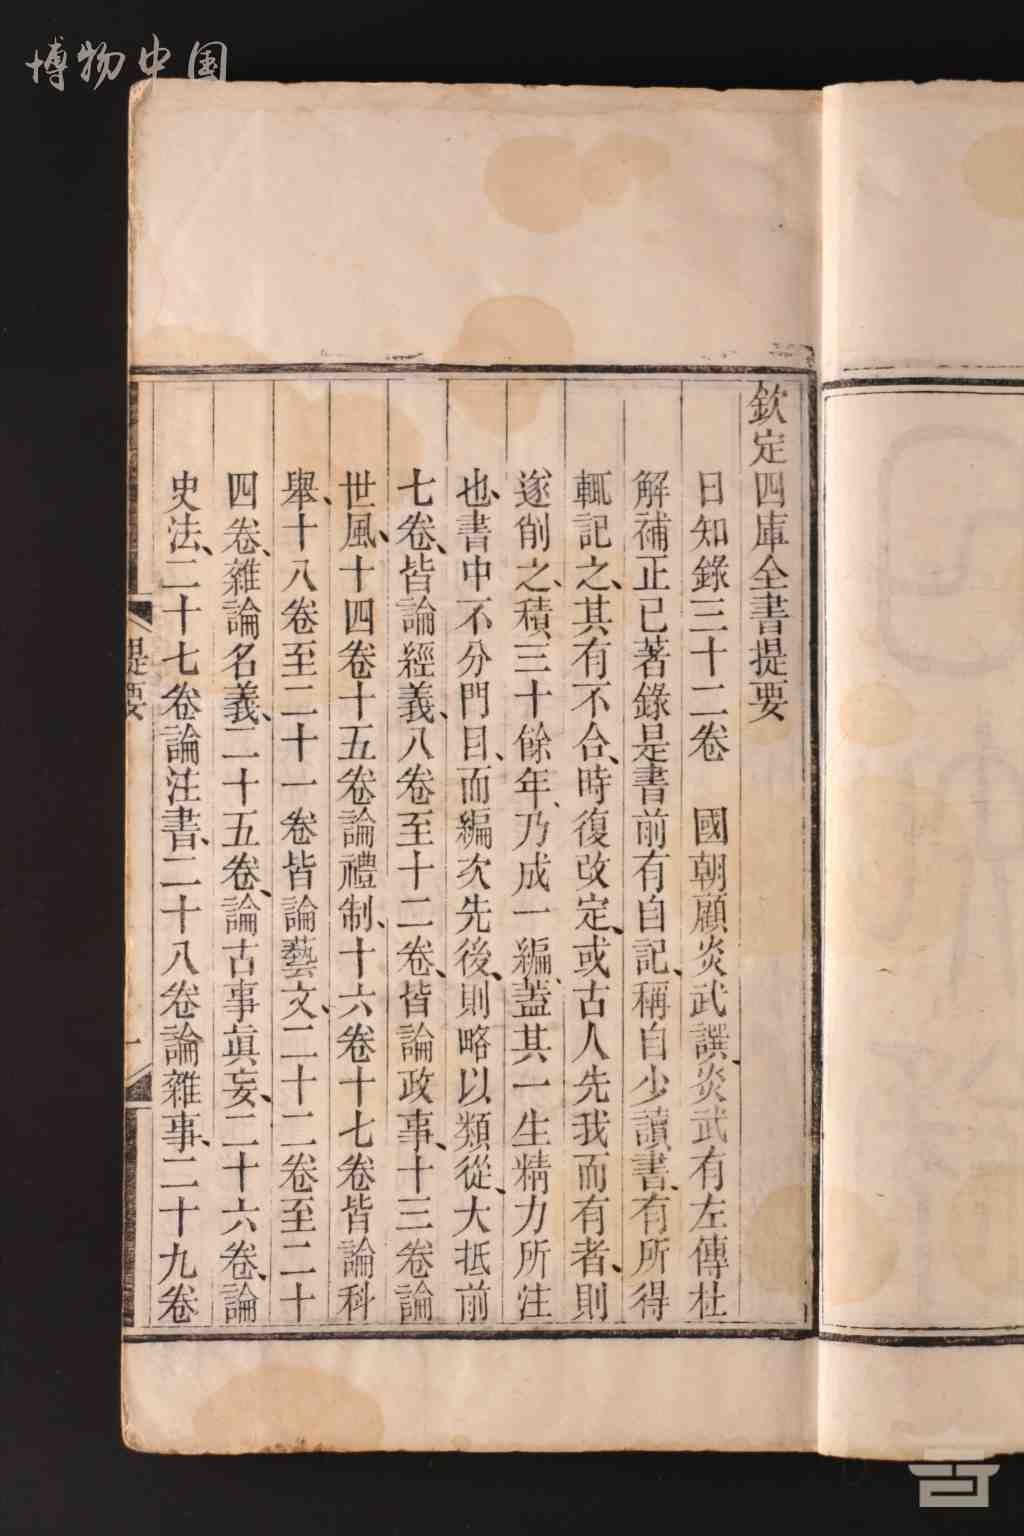 博物中国
欽定四庫全書提要
日知錄三十二卷　國朝顧炎武譔、炎武有左傳杜
解補正已著錄是書前有自記、稱自少讀書、有所得
輒記之、其有不合、時復改定、或古人先我而有者、則
遂削之、積三十餘年、乃成一編、蓋其一生精力所注
也、書中不分門目、而編次先後、則略以類從、大抵前
七卷、皆論經義、八卷至十二卷、皆論政事、十三卷論
世風、十四卷十五卷論禮制、十六卷十七卷皆論科
舉、十八卷至二十一卷皆論藝文、二十二卷至二十
四卷、雜論名義、二十五卷、論古事眞妄、二十六卷、論
史法、二十七卷論注書、二十八卷論雜事、二十九卷
提要
一